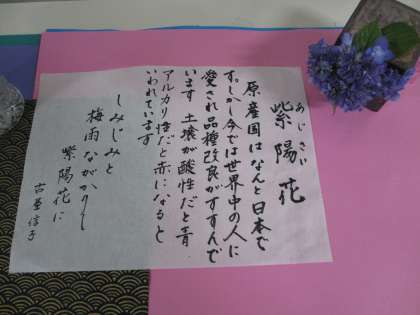 あじさい
紫陽花
原産国はなんと日本で
す。しかし今では世界中の人に
愛され品種改良がすすんで
います 土壌が酸性だと青
アルカリ性だと赤になると
いわれています
しみじみと
梅雨ながかりし
紫陽花に